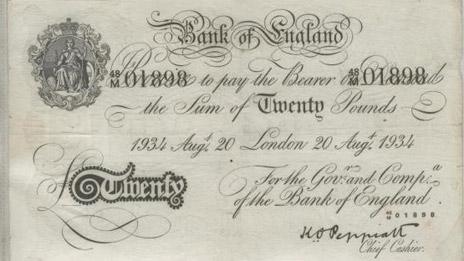 Bank of England
48/M 01898 to pay the Bearer on 48/M 01898
the Sum of Twenty Pounds
1934 Augt. 20 London 20 Augt. 1934
Twenty
For the Govr. and Compa.
of the Bank of England.
48/M 01898
K O Peppiatt
Chief Cashier.